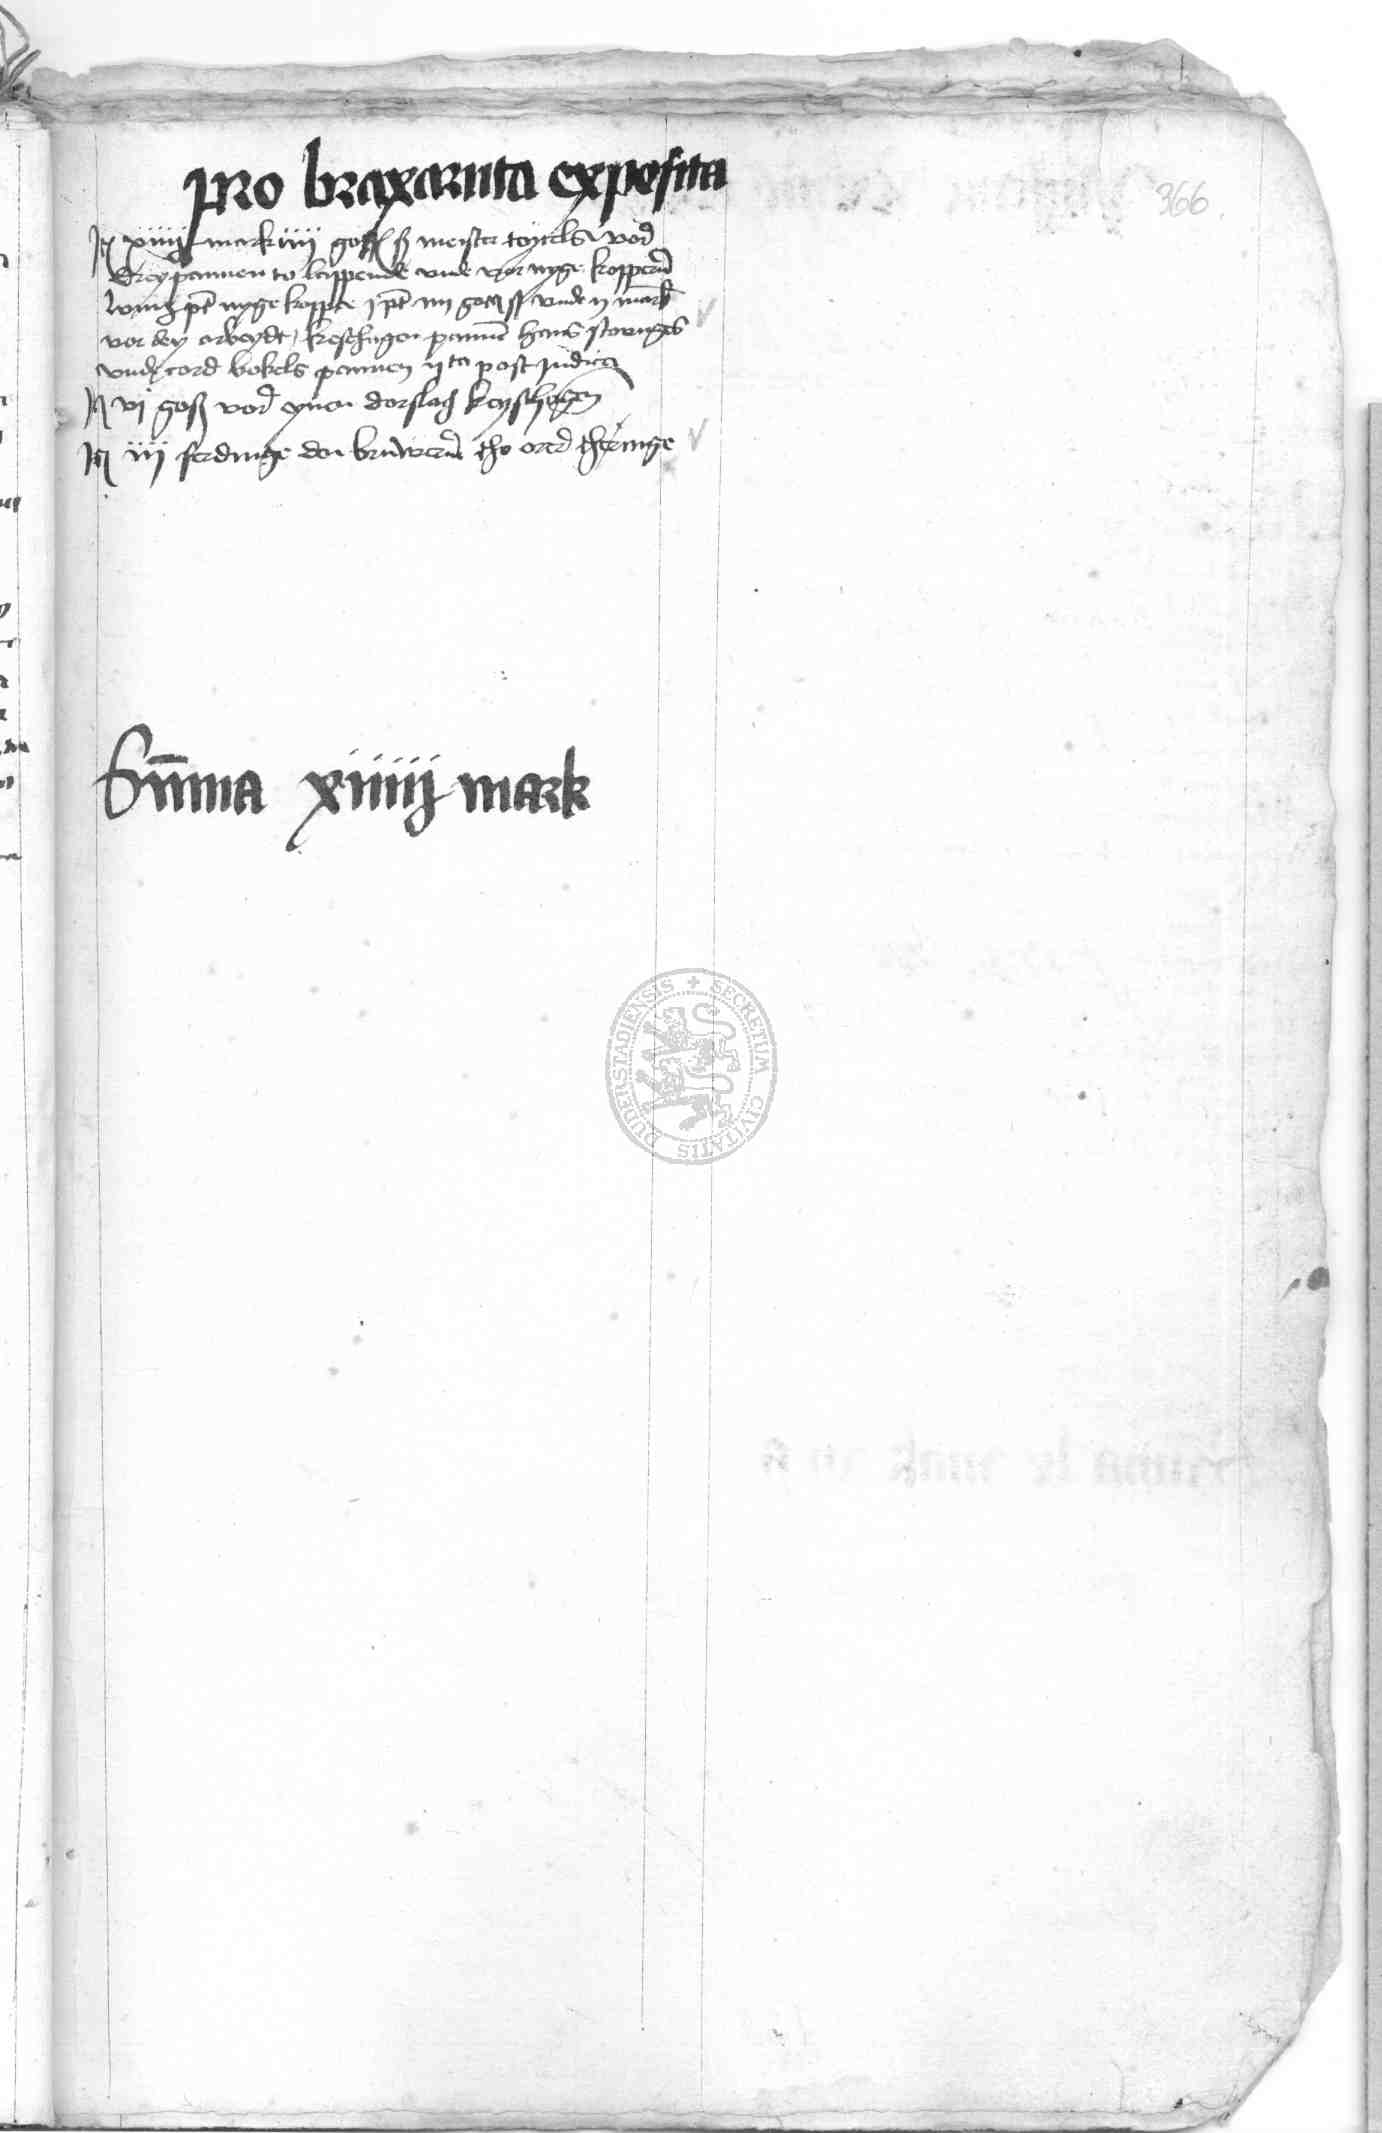 pro braxarnta exposita
366
It xiiij mark iiij gosß meister toyrels vor
drey pannen to lappende unde vor nyge kopper
nyge koppre j pt iiij gosß unde ij mark
vor dey arbeydt, keshagen pannen hans stonges
unde cord bokels pannen ij ta post judica
It vj gosß vor eynen dorslach keyshagen
It iij ferdinge den bruweren tho orer theringe
Sūma xiiiij mark
SECRETUM CIVITATIS DUDERSTADIENSIS